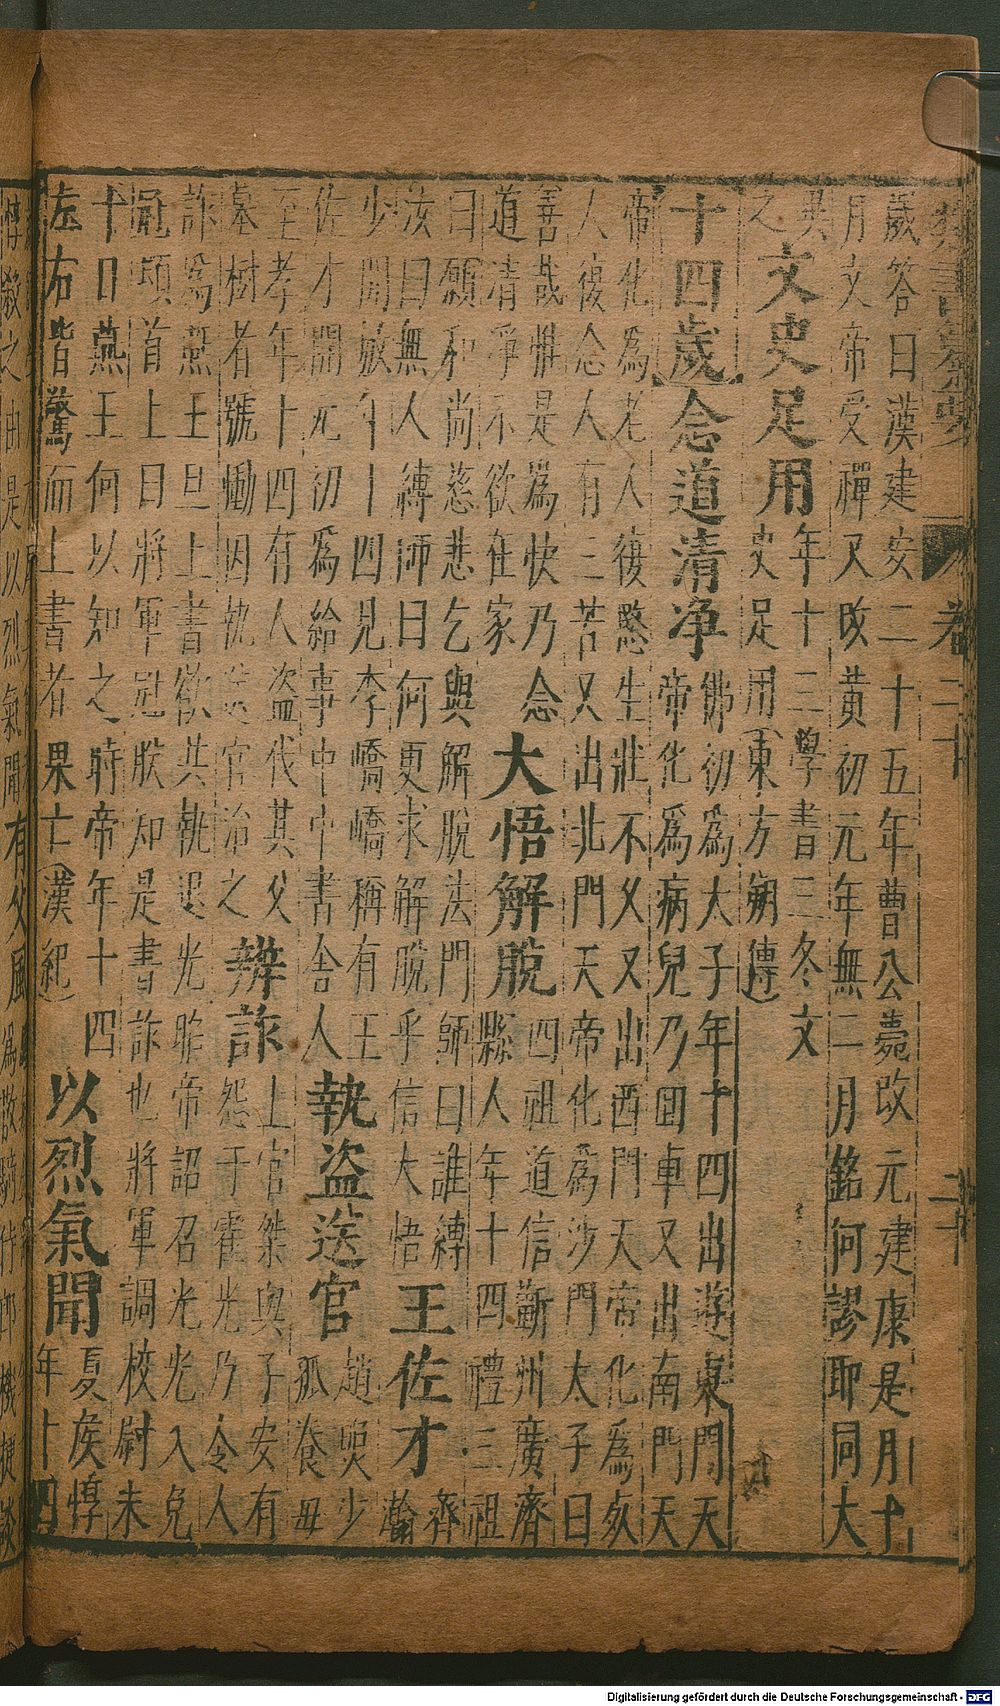 歲答曰漢建安二十五年曹公薨改元建康是月十
月文帝受禪又改黃初元年無二月銘何謬耶同大
異之
文史足用
年十三學書三冬文
史足用(東方朔傳)
十四歲
念道清净
佛初為大子年十四出遊東門天
帝化為病兒乃囬車又出南門天
帝化為老人復愍生壯不久又出酉門天帝化為死
人復念人人有三苦又出北門天帝化為沙門太子曰
善哉惟是為快乃念
道清淨不欲在家
大悟解脫
四祖道信蘄州廣濟
縣人年十四禮三祖
曰願和尚慈悲乞與解脫法門師曰誰縛
汝曰無人縛師曰何更求解脫乎信大悟
王佐才
齊瀚
少開敏年十四見李嶠嶠稱有王
佐才開元初為給事中中書舍人
執盗送官
趙㷡少
孤養毋
至孝年十四有人盜伐其父
墓樹者號慟因執送官治之
辨詐
上官桀與子安有
怨于霍光乃令人
詐爲燕王旦上書欲共執退光昨帝詔召光光入免
冠頓首上曰將軍冠朕知是書詐也將軍調校尉未
十日燕王何以知之時帝年十四
左右皆驚而上書者果亡(漢紀)
以烈氣聞
夏侯惇
年十四
卷二十
二十
Digitalisierung gefördert durch die Deutsche Forschungsgemeinschaft - DFG